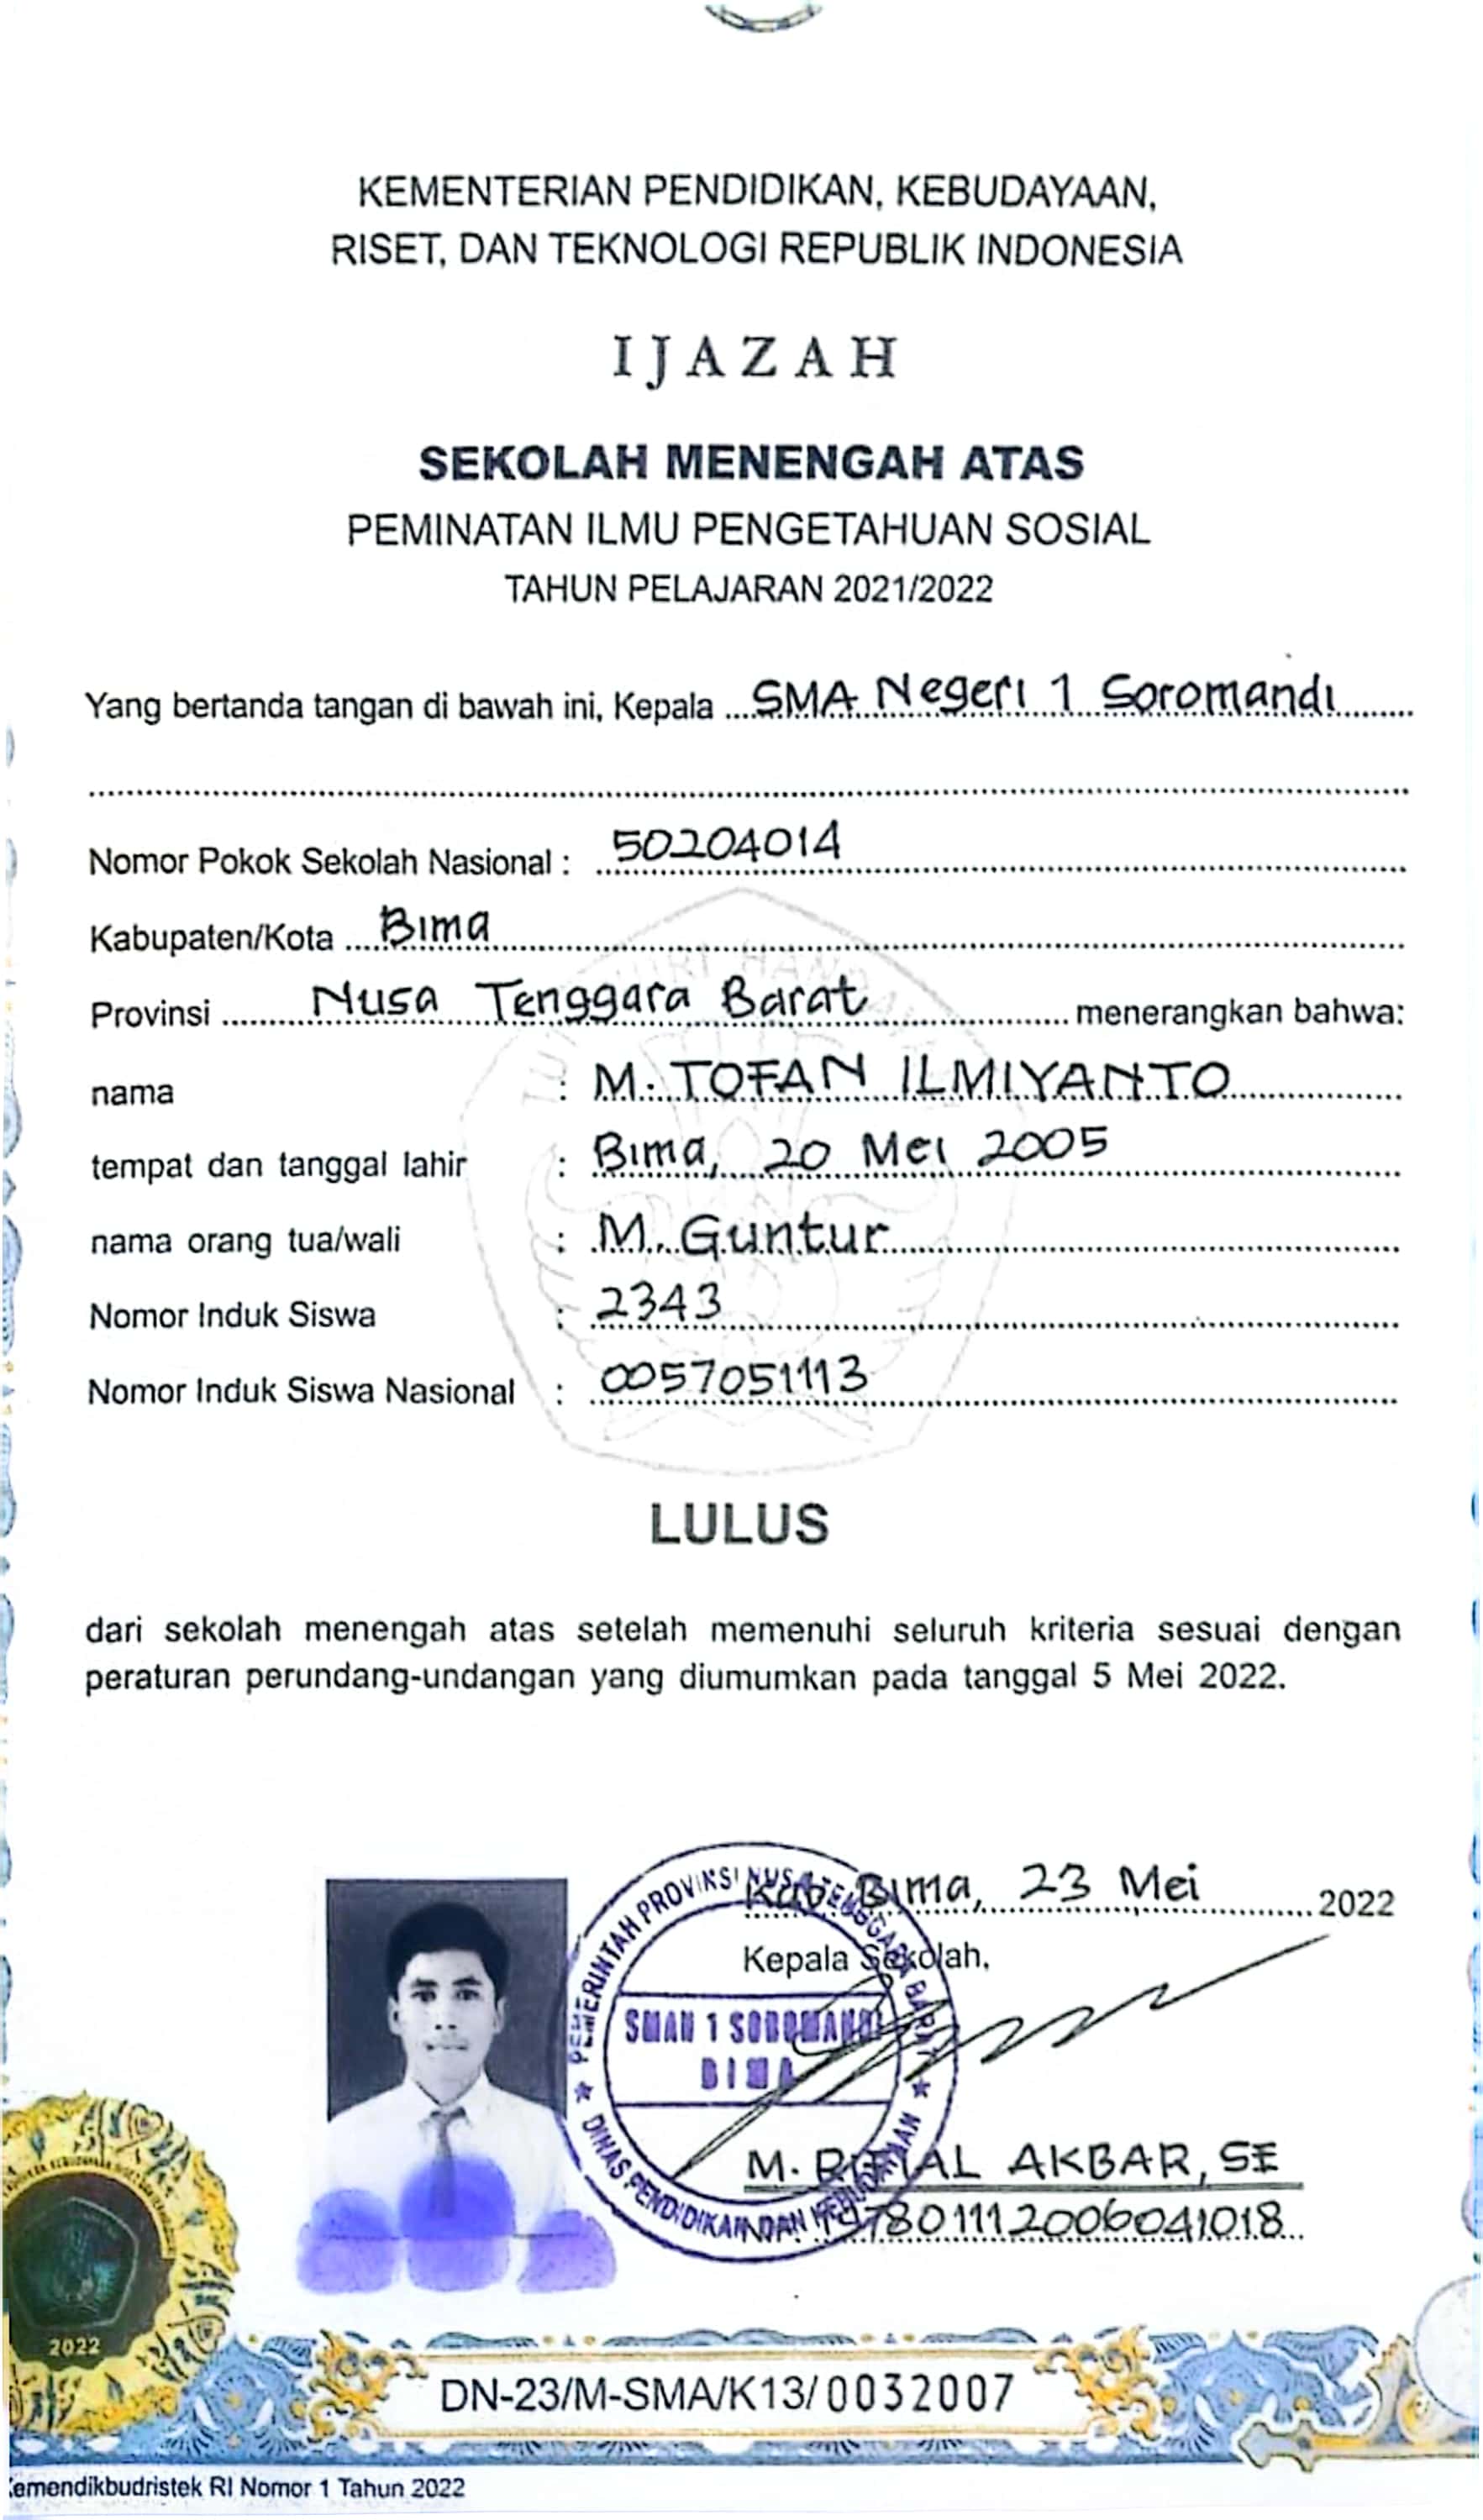 KEMENTERIAN PENDIDIKAN, KEBUDAYAAN,
RISET, DAN TEKNOLOGI REPUBLIK INDONESIA
IJAZAH
SEKOLAH MENENGAH ATAS
PEMINATAN ILMU PENGETAHUAN SOSIAL
TAHUN PELAJARAN 2021/2022
Yang bertanda tangan di bawah ini, Kepala SMA Negeri 1 Soromandi
Nomor Pokok Sekolah Nasional : 50204014
Kabupaten/Kota Bima
Provinsi Nusa Tenggara Barat menerangkan bahwa:
nama : M. TOFAN ILMIYANTO
tempat dan tanggal lahir : Bima, 20 Mei 2005
nama orang tua/wali : M. Guntur
Nomor Induk Siswa : 2343
Nomor Induk Siswa Nasional : 0057051113
LULUS
dari sekolah menengah atas setelah memenuhi seluruh kriteria sesuai dengan
peraturan perundang-undangan yang diumumkan pada tanggal 5 Mei 2022.
Kab. Bima, 23 Mei 2022
Kepala Sekolah,
PEMERINTAH PROVINSI NUSA TENGGARA BARAT
SMAN 1 SOROMANDI
BIMA
DINAS PENDIDIKAN DAN KEBUDAYAAN
M. AKBAR, SE
NIP. 197801112006041018
2022
DN-23/M-SMA/K13/0032007
emendikbudristek RI Nomor 1 Tahun 2022